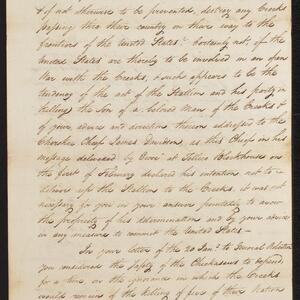 & if not otherwise to be prevented, destroy any Creeks
passing thro their country on their way to the
frontiers of the United States? Certainly not, if the
United States are thereby to be involved in an open
War with the Creeks, & such appears to be the
tendency of the act of the Stallion and his party in
killing the Son of a beloved Man of the Creeks &
of your advice and direction thereon addressed to the
Cherokee Chief James Davidson, as this Chief in his
message delivered by Overr at Tellico Blockhouse on
the first of February declared his intention not to
deliver up the Stallion to the Creeks, it was not
necessary for you in your answer pointedly to avow
the propriety of his determination and by your advice
in any measure to commit the United States —
In your letter of the 20 Jany. to General Robertson
you considered the safety of the Chickasaws to depend
for a time, on the opinion in which the Creeks
would remain of the killing of five of their Nation